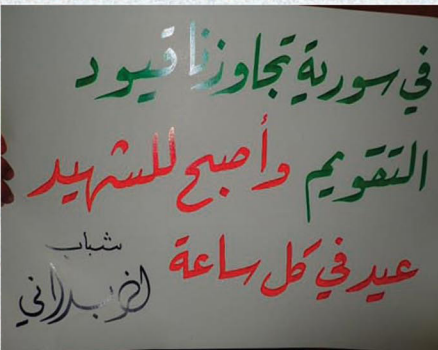 في سورية تجاوزنا قيود
التقويم وأصبح للشهيد
عيد في كل ساعة
شباب
الزبداني